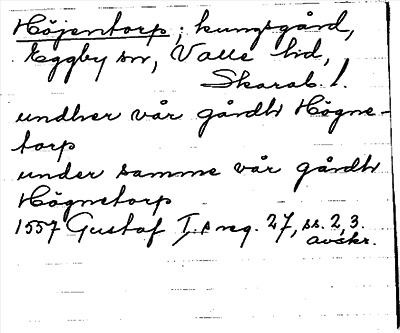 Höjentorp; kungsgård,
Eggby sn, Valle hd,
Skarab. l.
undher vår gårdh Högne-
torp
under samme vår gårdh
Högnetorp
1557 Gustaf I:s reg. 27, ss. 2, 3.
avskr.